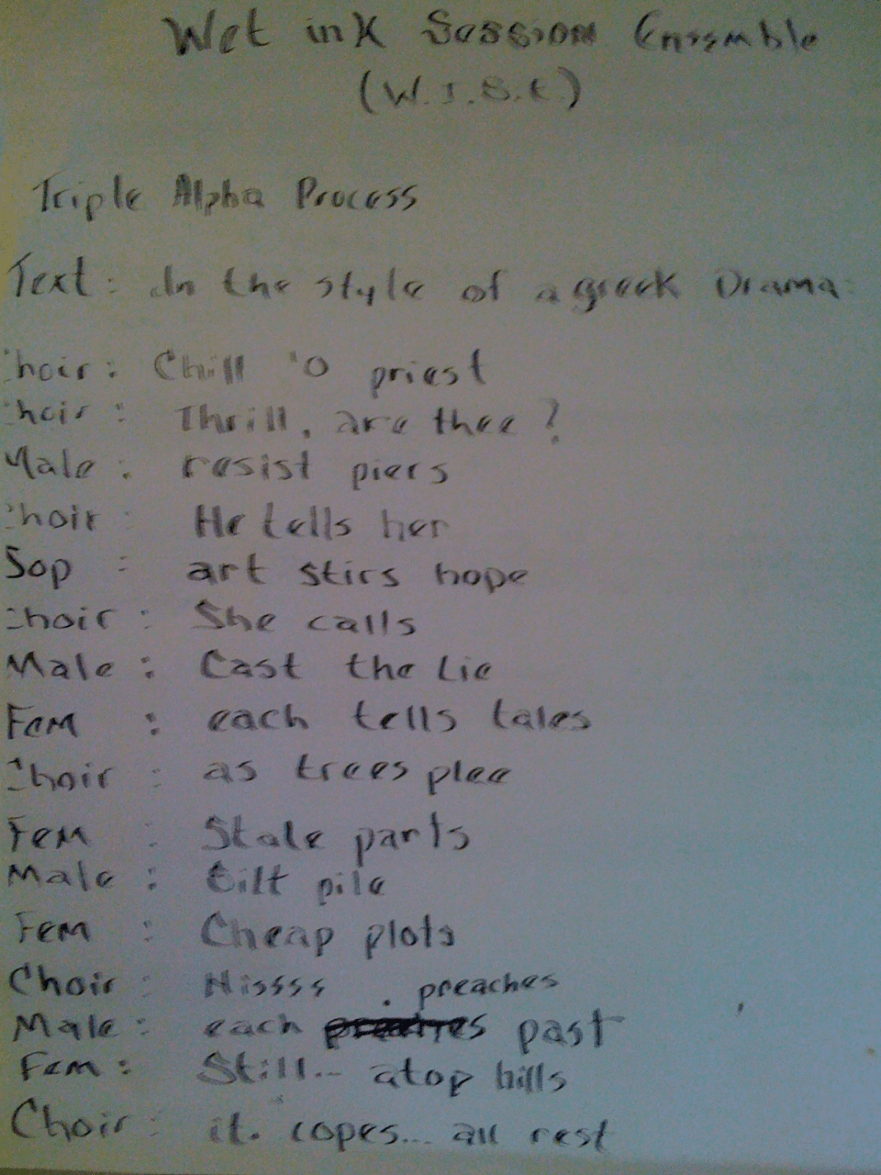 Wet ink Session Ensemble
(W.I.S.E.)
Triple Alpha Process
Text: In the style of a greek Drama:
Choir: Chill 'O priest
Choir: Thrill, are thee?
Male: resist piers
Choir: He tells her
Sop: art stirs hope
Choir: She calls
Male: Cast the Lie
Fem: each tells tales
Choir: as trees plea
Fem: Stale parts
Male: Silt pile
Fem: Cheap plots
Choir: Hissss
Male: each preaches past
Fem: Still... atop hills
Choir: it. copes... all rest